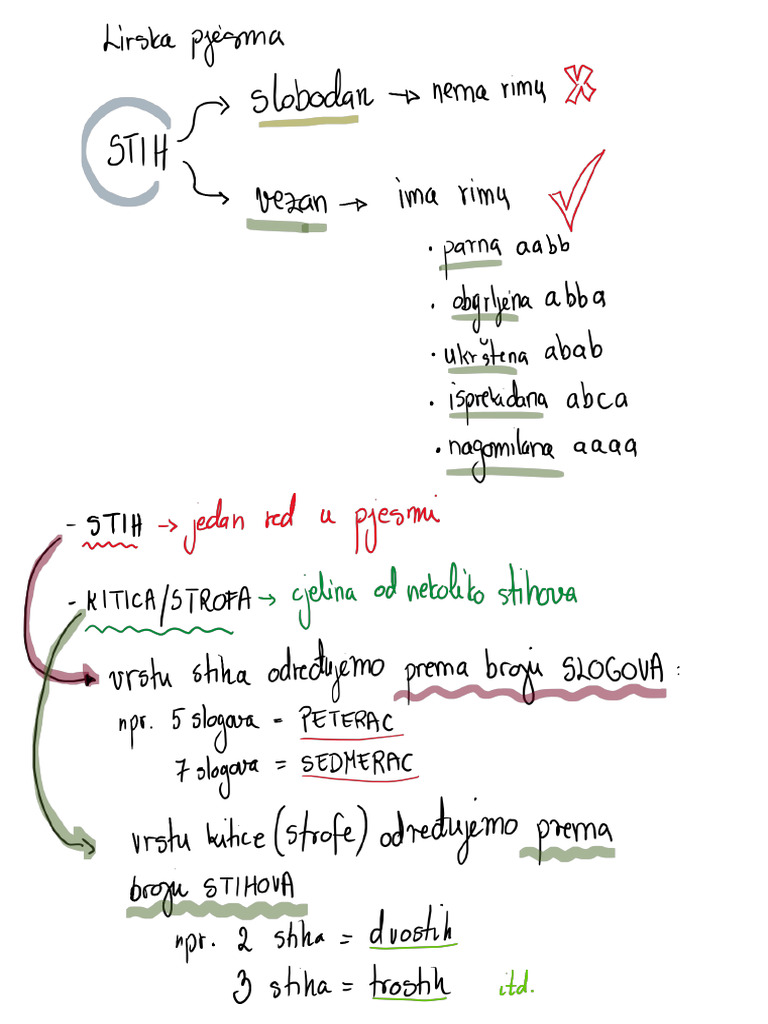 Lirska pjesma
STIH
slobodan → nema rimu X
vezan → ima rimu ✓
• parna aabb
• obgrljena abba
• ukrštena abab
• isprekidana abca
• nagomilana aaaa
- STIH → jedan red u pjesmi
- KITICA/STROFA → cjelina od nekoliko stihova
vrstu stiha određujemo prema broju SLOGOVA:
npr. 5 slogova = PETERAC
7 slogova = SEDMERAC
vrstu kitice (strofe) određujemo prema
broju STIHOVA
npr. 2 stiha = dvostih
3 stiha = trostih itd.